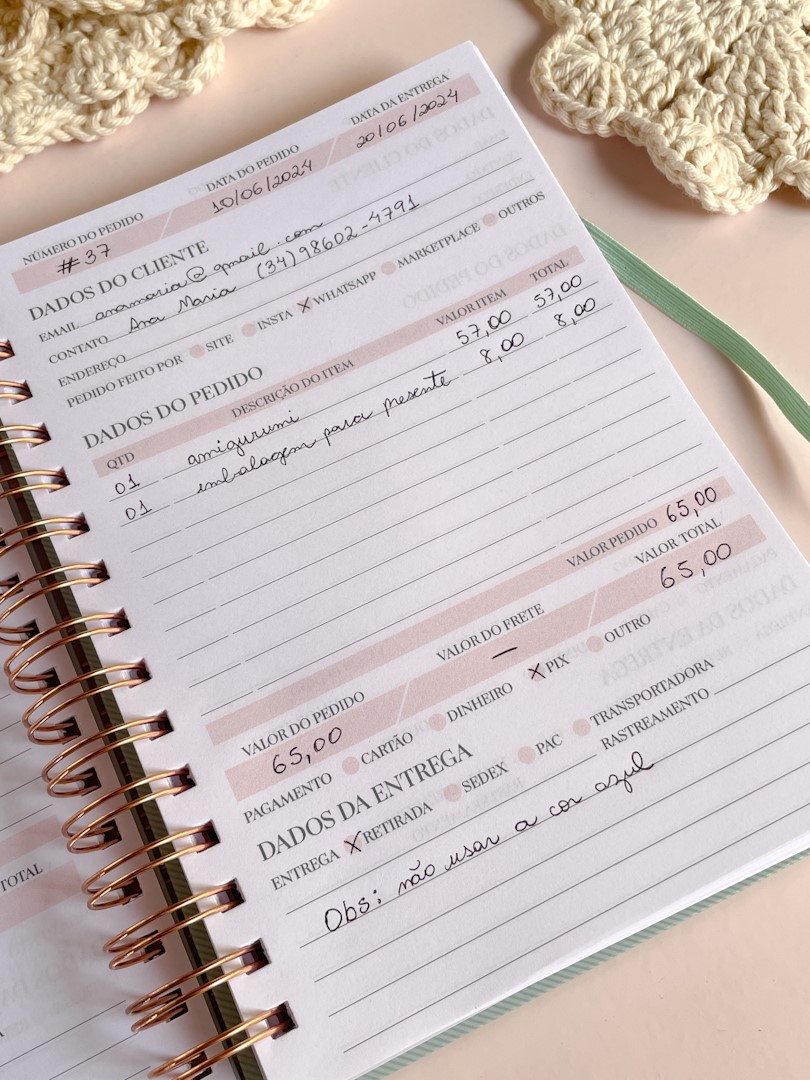 NÚMERO DO PEDIDO DATA DO PEDIDO DATA DA ENTREGA
#37 10/06/2024 20/06/2024
DADOS DO CLIENTE
EMAIL anamaria@gmail.com
CONTATO Ana Maria (34) 98602-4791
ENDEREÇO
PEDIDO FEITO POR SITE INSTA X WHATSAPP MARKETPLACE OUTROS
DADOS DO PEDIDO
QTD DESCRIÇÃO DO ITEM VALOR ITEM TOTAL
01 amigurumi 57,00 57,00
01 embalagem para presente 8,00 8,00
VALOR PEDIDO 65,00
VALOR DO PEDIDO VALOR DO FRETE VALOR TOTAL
65,00 — 65,00
PAGAMENTO CARTÃO DINHEIRO X PIX OUTRO
DADOS DA ENTREGA
ENTREGA X RETIRADA SEDEX PAC TRANSPORTADORA
RASTREAMENTO
Obs: não usar a cor azul
TOTAL